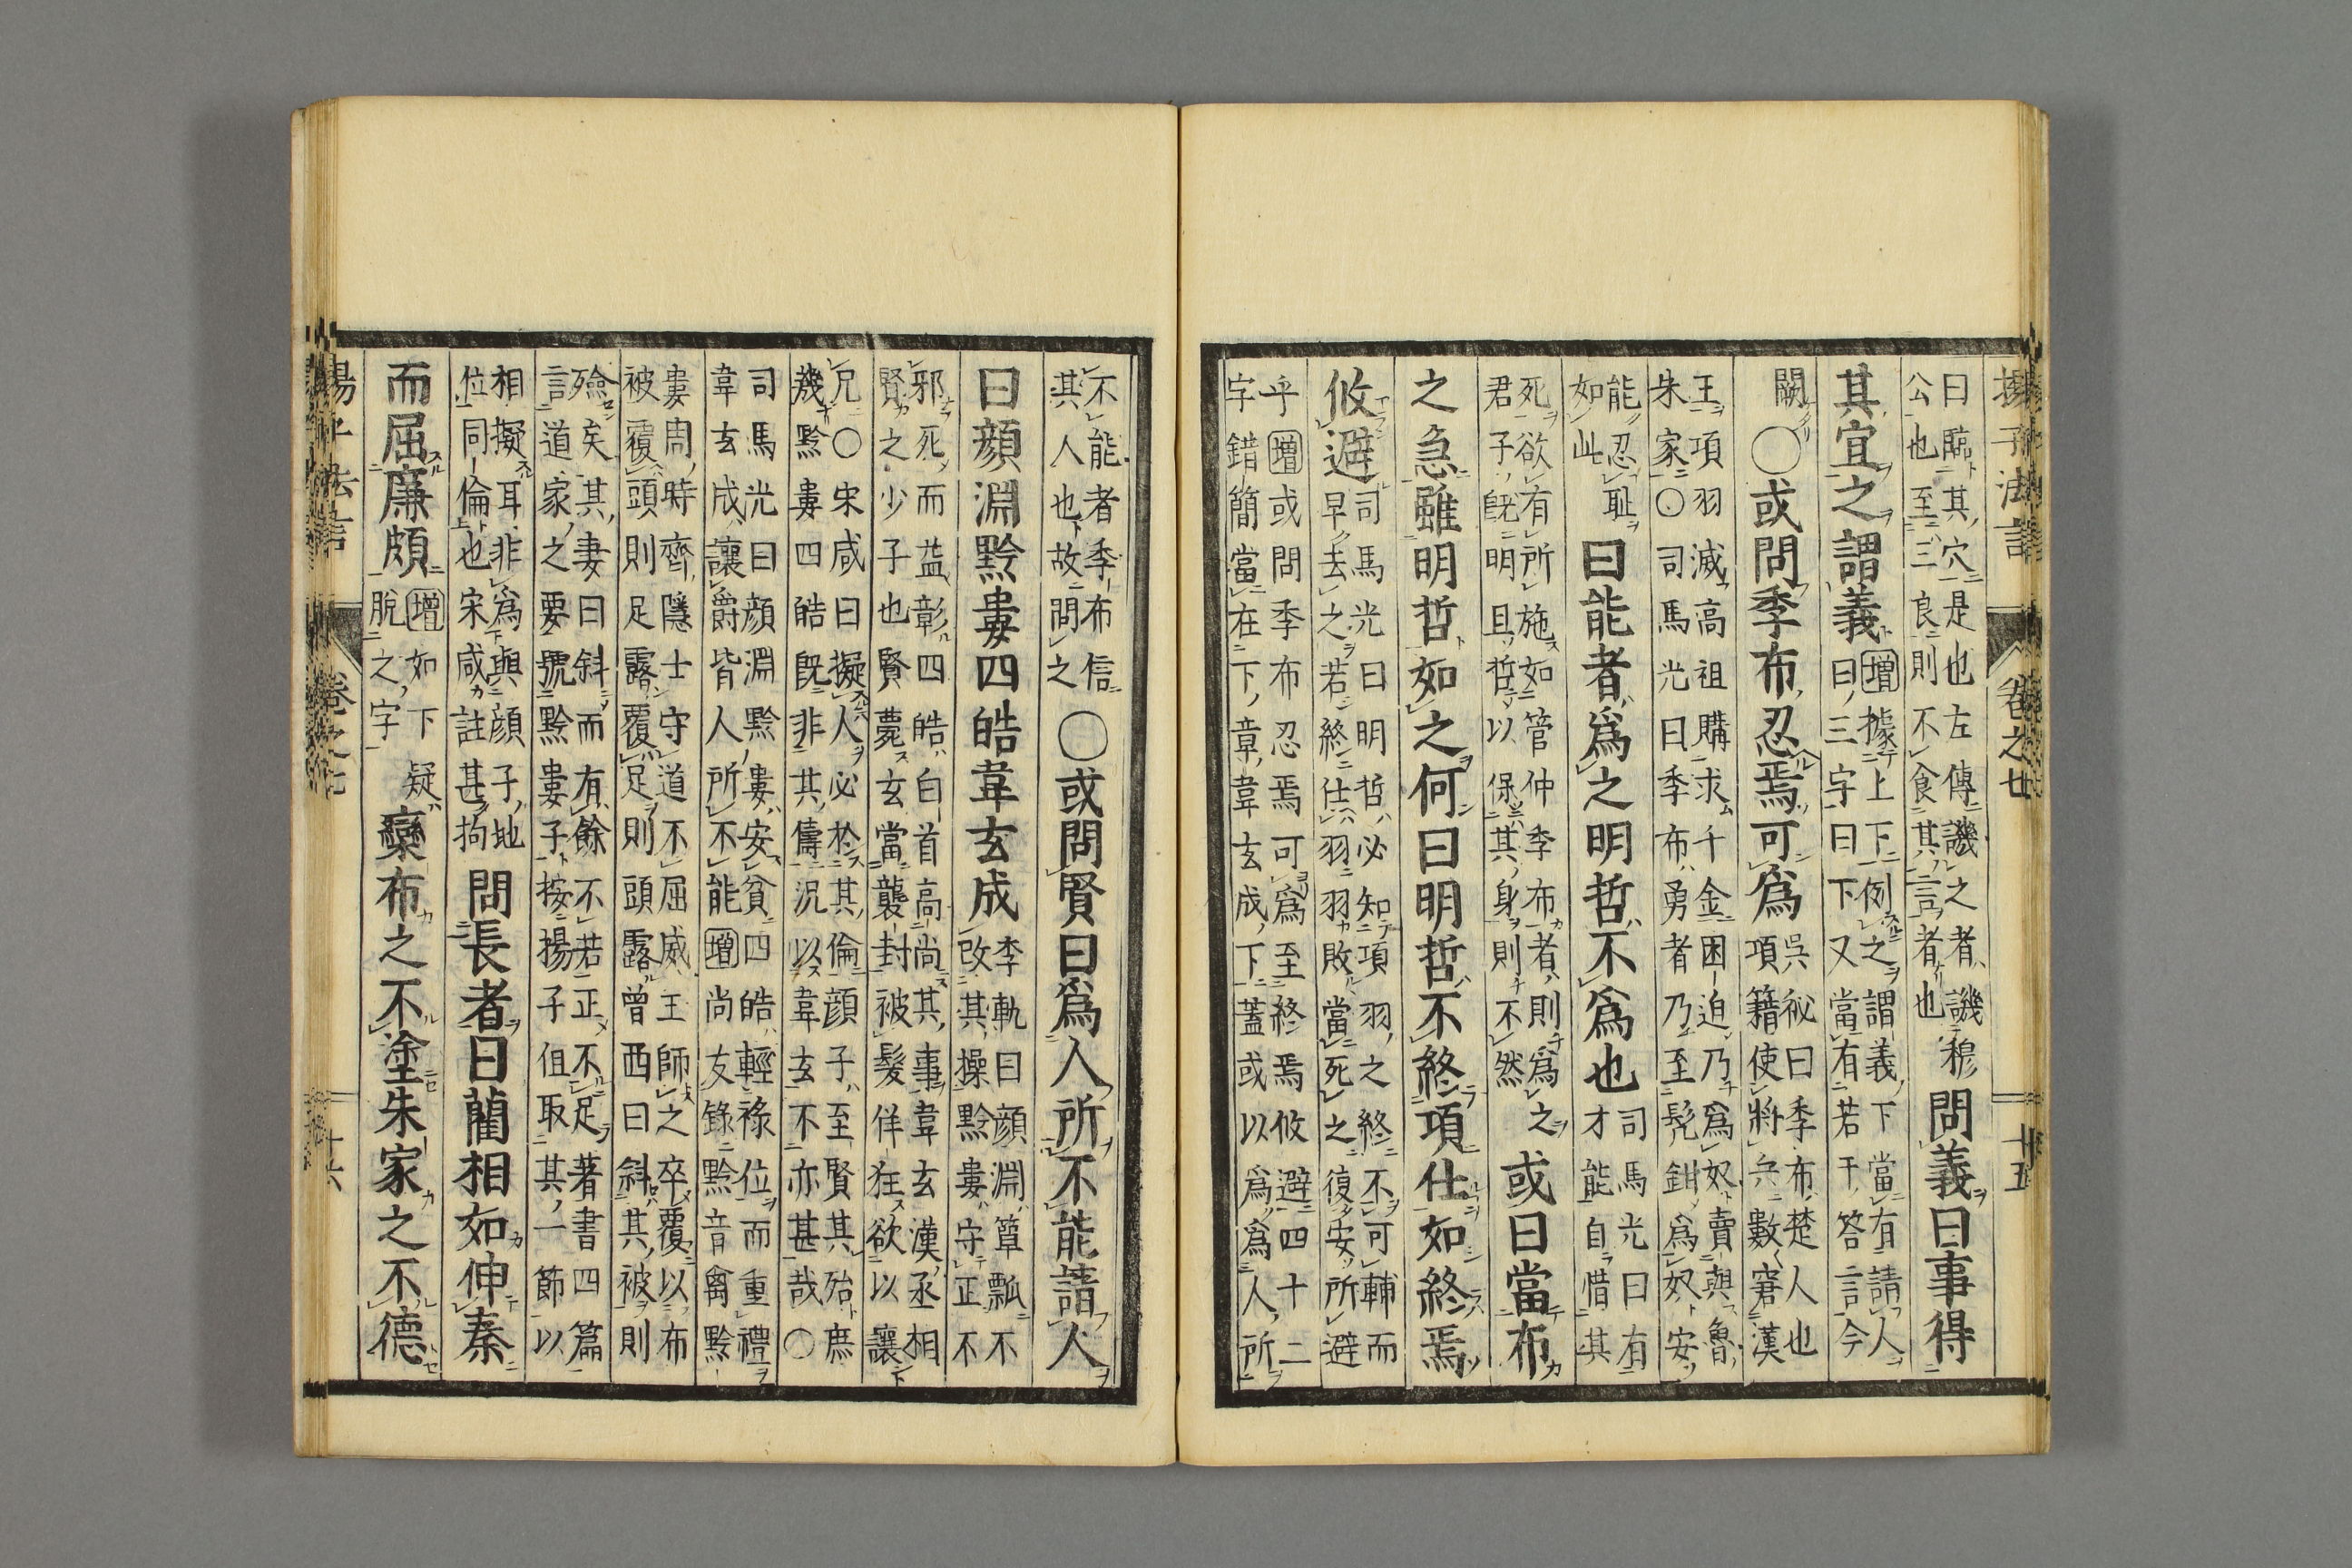 揚子法言　卷之七　十五
曰臨其穴是也左傳譏之者譏穆
公也至三良則不食其言者也
問義曰事得
其宜之謂義
增據上下例之謂義下當有請人
曰三字曰下又當有若干答言今
闕
〇或問季布忍焉可爲
吳祕曰季布楚人也
項籍使將兵數窘漢
王項羽滅高祖購求千金困迫乃爲奴賣與魯
朱家〇司馬光曰季布勇者乃至髡鉗爲奴安
能忍耻
如此
曰能者爲之明哲不爲也
司馬光曰有
才能自惜其
死欲有所施如管仲季布者則爲之
君子旣明且哲以保其身則不然
或曰當布
之急雖明哲如之何曰明哲不終項仕如終焉
攸避
司馬光曰明哲必知項羽之終不可輔而
早去之若終仕羽羽敗當死之復安所避
乎增或問季布忍焉可爲至終焉攸避四十二
字錯簡當在下章韋玄成下蓋或以爲爲人所
不能者季布信
其人也故問之
〇或問賢曰爲人所不能請人
曰顔淵黔婁四皓韋玄成
李軌曰顔淵簞瓢不
改其操黔婁守正不
邪死而益彰四皓白首高尚其事韋玄漢丞相
賢之少子也賢薨玄當襲封被髮佯狂欲以讓
兄〇宋咸曰擬人必於其倫顔子至賢其殆庶
幾黔婁四皓旣非其儔況以韋玄不亦甚哉〇
司馬光曰顔淵黔婁安貧四皓輕祿位而重禮
韋玄成讓爵皆人所不能增尚友錄黔音禽黔
婁周時齊隱士守道不屈威王師之卒覆以布
被覆頭則足露覆足則頭露曾西曰斜其被則
殮矣其妻曰斜而有餘不若正不足著書四篇
言道家之要號黔婁子按揚子但取其一節以
相擬耳非爲與顔子地
位同倫也宋咸註甚拘
問長者曰藺相如伸秦
而屈廉頗
增如下疑
脫之字
欒布之不塗朱家之不德
揚子法言　卷之七　十六